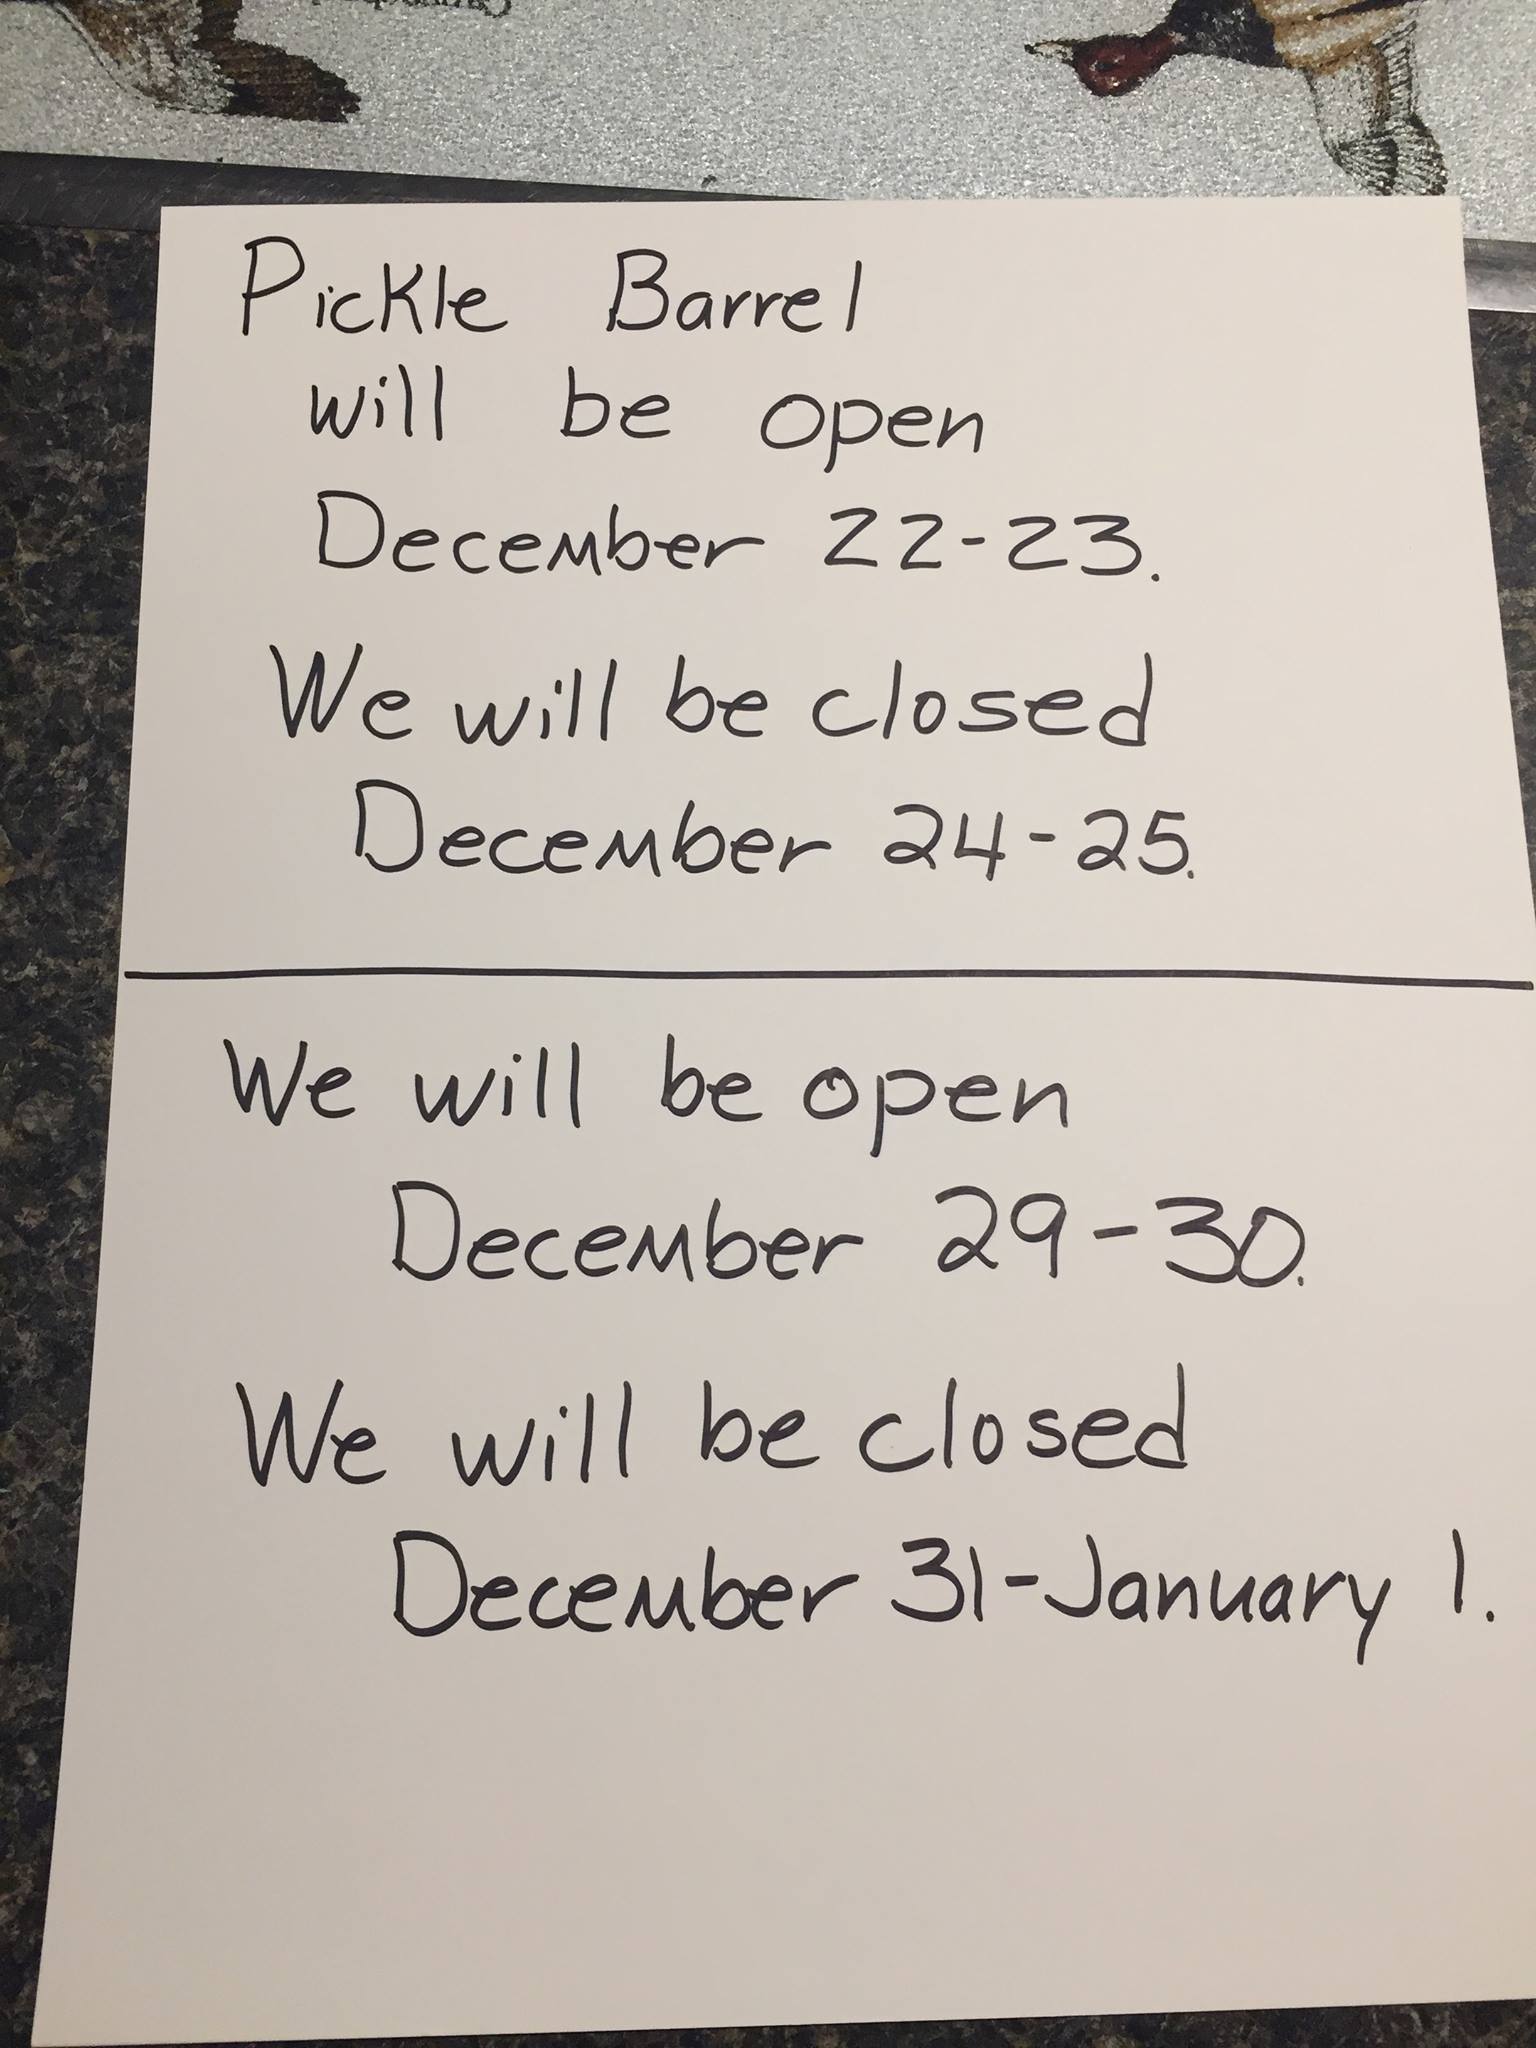 Pickle Barrel
will be open
December 22-23.
We will be closed
December 24-25.
We will be open
December 29-30.
We will be closed
December 31-January 1.